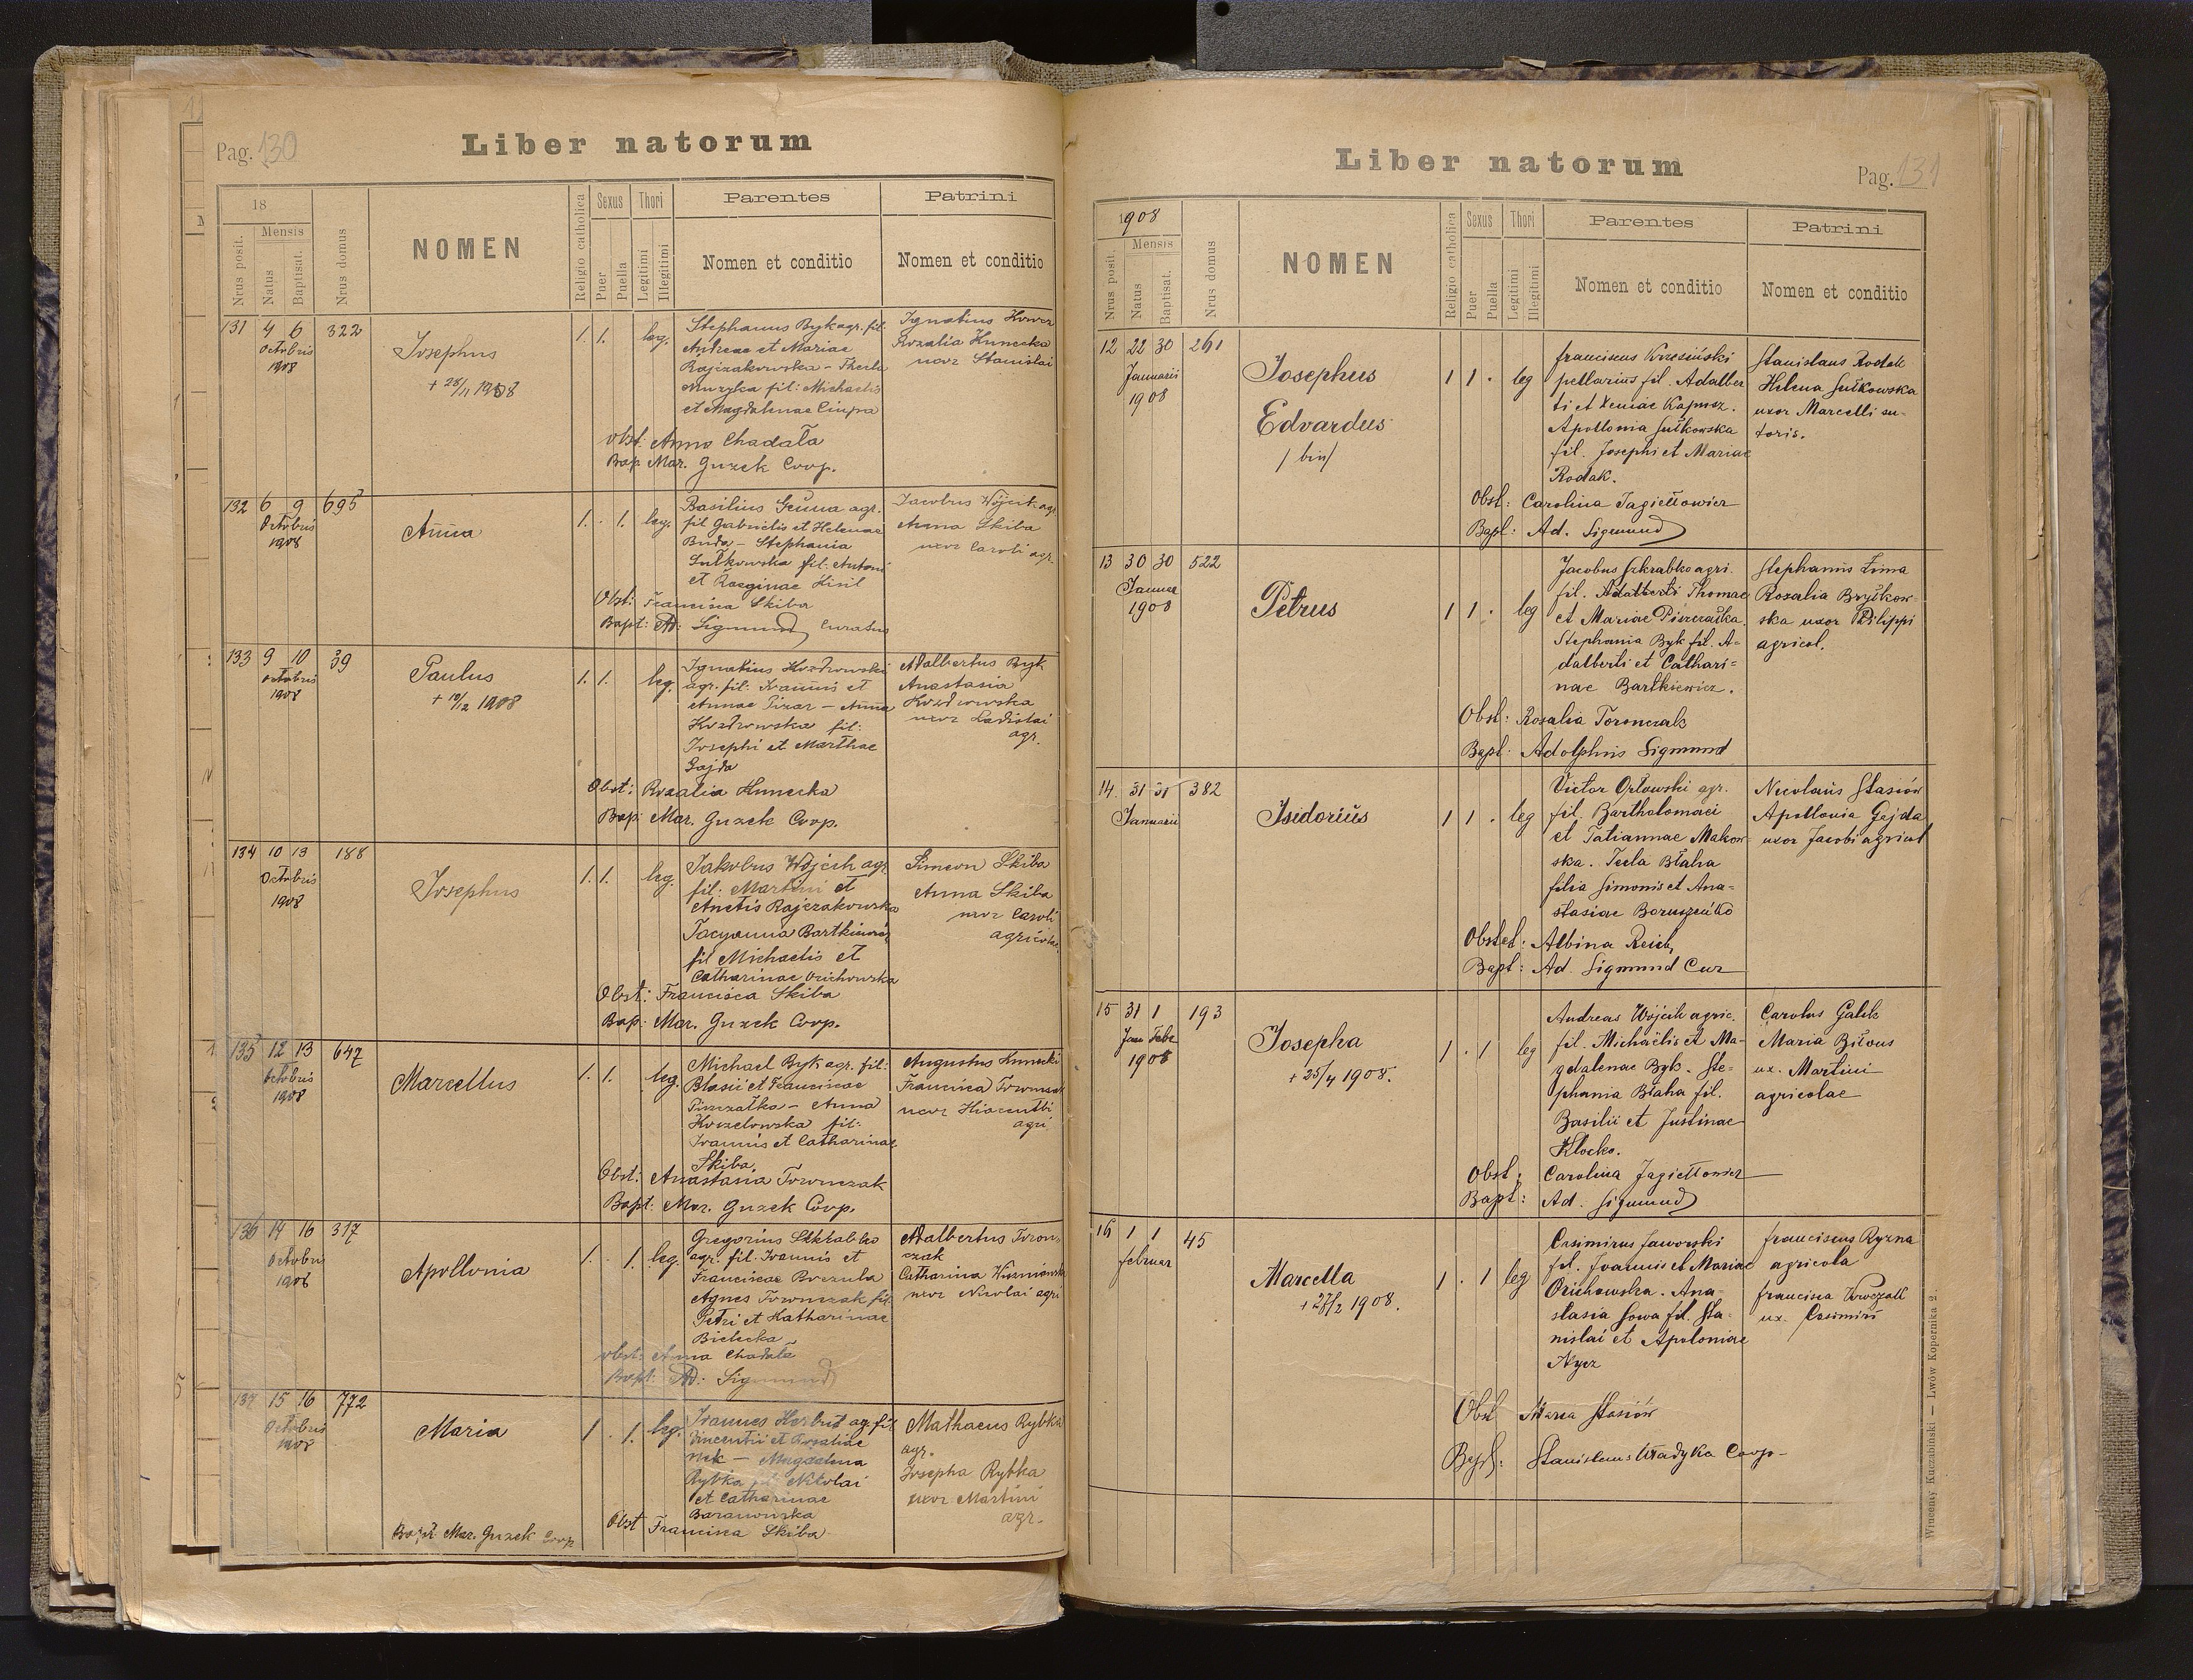 Pag. 130
Liber natorum
18
Mensis
Nrus posit.
Natus
Baptisat.
Nrus domus
NOMEN
Religio catholica
Sexus
Puer
Puella
Thori
Legitimi
Illegitimi
Parentes
Nomen et conditio
Patrini
Nomen et conditio
131 4 6 322
Octobris
1908
Josephus
+ 28/11 1908
1. 1. leg.
Stephanus Byk agr. fil.
Andreae et Mariae
Rajczakowska - Thecla
Muzyka fil: Michaelis
et Magdalenae Ciupa
Ignatius
Rozalia Kunecka
uxor Stanislai
obst: Anna Chadała
Bap. Mar. Guzek Coop.
132 6 9 695
Octobris
1908
Anna
1. . 1. leg.
Basilius agr.
fil Gabrielis et Helenae
Buda - Stephania
Sułkowska fil. Antoni
et Roeginae Kisil
Jacobus Wójcik agr.
Anna Skiba
uxor Caroli agr.
Obst: Francisca Skiba
Bapt: Ad: Sigmund Curatus
133 9 10 39
Octobris
1908
Paulus
+ 10/12 1908
1. 1. leg.
Ignatius
agr. fil: Ioannis et
Annae - Anna
fil:
Josephi et Marthae
Gajda
Adalbertus Byk
Anastasia
uxor Ladislai
agr.
Obst: Rozalia Kunecka
Bap: Mar. Guzek Coop.
134 10 13 188
Octobris
1908
Josephus
1. 1. leg.
Jakobus Wójcik agr
fil: Martini et
Anetis Rajczakowska
Bartkiewicz
fil Michaelis et
Catharinae Orichowska
Simeon Skiba
Anna Skiba
uxor Caroli
agricolae
Obst: Francisca Skiba
Bap: Mar. Guzek Coop.
135 12 13 647
Octobris
1908
Marcellus
1. 1. leg.
Michael Byk agr. fil:
Blasii et Franciscae
Piszczatka - Anna
fil:
Ioannis et Catharinae
Skiba
Augustus Kunecki
Francisca Toronczak
uxor
agri
Obst: Anastasia Toronczak
Bapt: Mar. Guzek Coop.
136 14 16 317
Octobris
1908
Apollonia
1. . 1. leg.
Gregorius Szkrabko
agr. fil. Ioannis et
Franciscae
Agnes Toronczak fil.
Petri et Katharinae
Bielecka
Adalbertus Toron-
czak
Catharina Wiszniowska
uxor Nicolai agri
obst: Anna Chadała
Bapt: Ad: Sigmund
137 15 16 772
Octobris
1908
Maria
1 . 1. leg.
Ioannes Herbut agr fil
Vincentii et Rozaliae
- Magdalena
Rybka fil Nikolai
et Catharinae
Baranowska
Mathaeus Rybka
agr.
Josepha Rybka
uxor Martini
agr.
Obst Francisca Skiba
Bapt. Mar. Guzek Coop
Liber natorum
Pag. 131
1908
Mensis
Nrus posit.
Natus
Baptisat.
Nrus domus
NOMEN
Religio catholica
Sexus
Puer
Puella
Thori
Legitimi
Illegitimi
Parentes
Nomen et conditio
Patrini
Nomen et conditio
12 22 30 261
Januaris
1908
Josephus
Edvardus
/ bin /
1 1 . leg
Franciscus Brzeziński
pellarius fil. Adalber
ti et Xeniae Kapusz.
Apollonia Sułkowska
fil. Josephi et Mariae
Rodak.
Stanislaus Rodak
Helena Sułkowska
uxor Marcelli su-
toris.
Obst: Carolina Jagiełłowicz
Bapt: Ad. Sigmund
13 30 30 522
Januar
1908
Petrus
1 1 . leg
Jacobus Szkrabko agri.
fil. Adalberti Thomae
et Mariae Piszczatka.
Stephania Byk fil. A-
dalberti et Cathari=
nae Bartkiewicz.
Stephanus
Rozalia Bryłkow
ska uxor Philippi
agricol.
Obst: Rosalia Toronczak
Bapt: Adolphus Sigmund
14. 31 31 382
Januarii
Isidorius
1 1 . leg
Victor Orłowski agr.
fil. Bartholomaei
et Tatiannae Makow
ska. Tecla Błaha
filia Simonis et Ana=
stasiae
Nicolaus Stasiów
Apollonia Gajda
uxor Jacobi agricol
Obstet: Albina Reich
Bapt: Ad. Sigmund Cur
15 31 1 193
Jan Febr
1908
Josepha
+ 25/4 1908.
1 . 1 leg
Andreas Wójcik agric.
fil. Michaëlis et Ma-
gdalenae Byk. Ste-
phania Błaha fil.
Basilii et Justinae
Klocko.
Carolus Galik
Maria Biłous
ux. Martini
agricolae
Obst: Carolina Jagiełłowicz
Bapt: Ad. Sigmund
16 1 1 45
februar
Marcella
+ 27/2 1908.
1 . 1 leg
Casimirus Jaworski
fil. Joannis et Mariae
Orichowska. Ana-
stasia Sowa fil. Sta-
nislai et Apoloniae
Nycz
Franciscus Ryzna
agricola
Francisca
ux. Casimiri
Obst Maria Stasiów
Bapt: Stanislaus Władyka Coop-
Wincenty Kuczabiński — Lwów Kopernika 2.